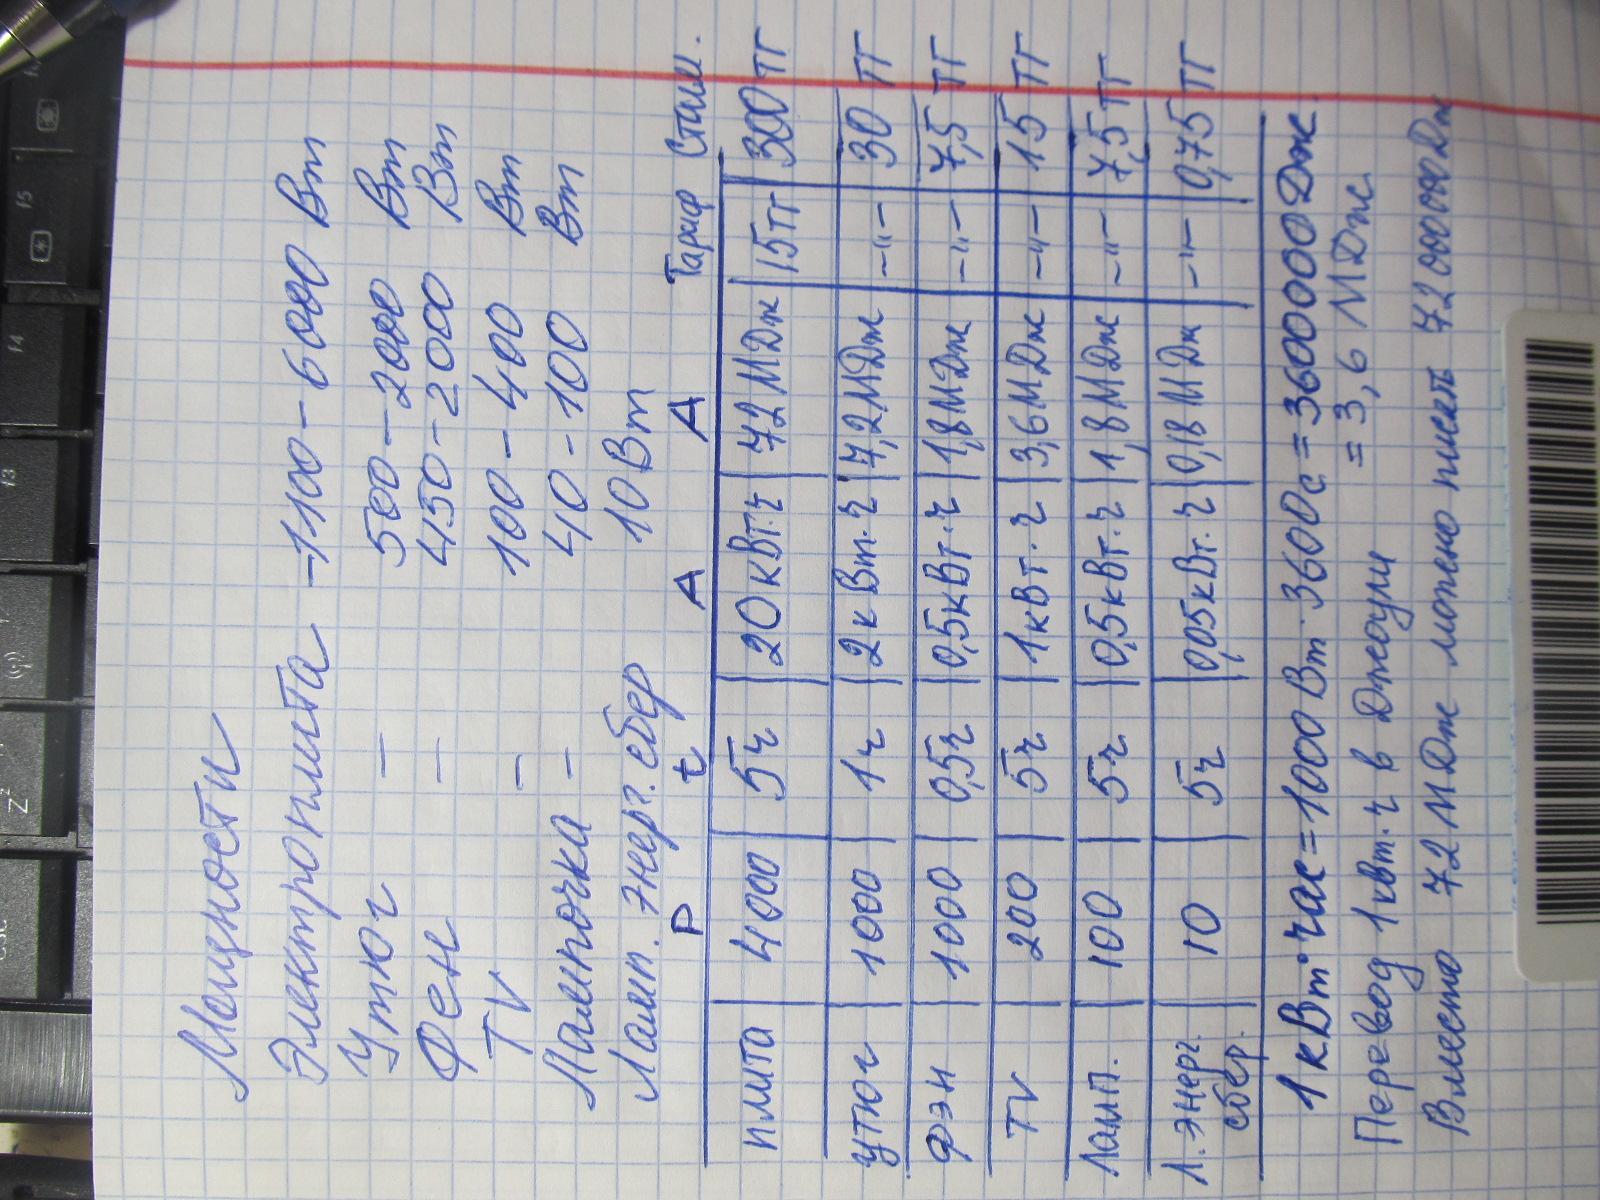 Мощности
Электроплита - 1100 - 6000 Вт
Утюг - 500 - 2000 Вт
Фен - 450 - 2000 Вт
TV - 100 - 400 Вт
Лампочка - 40 - 100 Вт
Ламп. энерг. сбер 10 Вт
P t A A Тариф Стоим.
плита 4000 5ч 20 кВт.ч 72 МДж 15тг 300 тг
утюг 1000 1ч 2 кВт.ч 7,2 МДж -"- 30 тг
Фэн 1000 0,5ч 0,5 кВт.ч 1,8 МДж -"- 7,5 тг
TV 200 5ч 1 кВт.ч 3,6 МДж -"- 15 тг
Ламп. 100 5ч 0,5 кВт.ч 1,8 МДж -"- 7,5 тг
Л. энерг. сбер. 10 5ч 0,05 кВт.ч 0,18 МДж -"- 0,75 тг
1 кВт·час = 1000 Вт · 3600 с = 3600000 Дж
Перевод 1 квт.ч в Джоули = 3,6 МДж
Вместо 72 МДж можно писать 72 000000 Дж